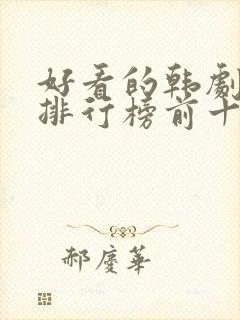 好看的韩劇
排行榜前十
郝慶華